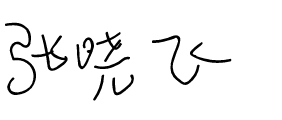 张晓飞